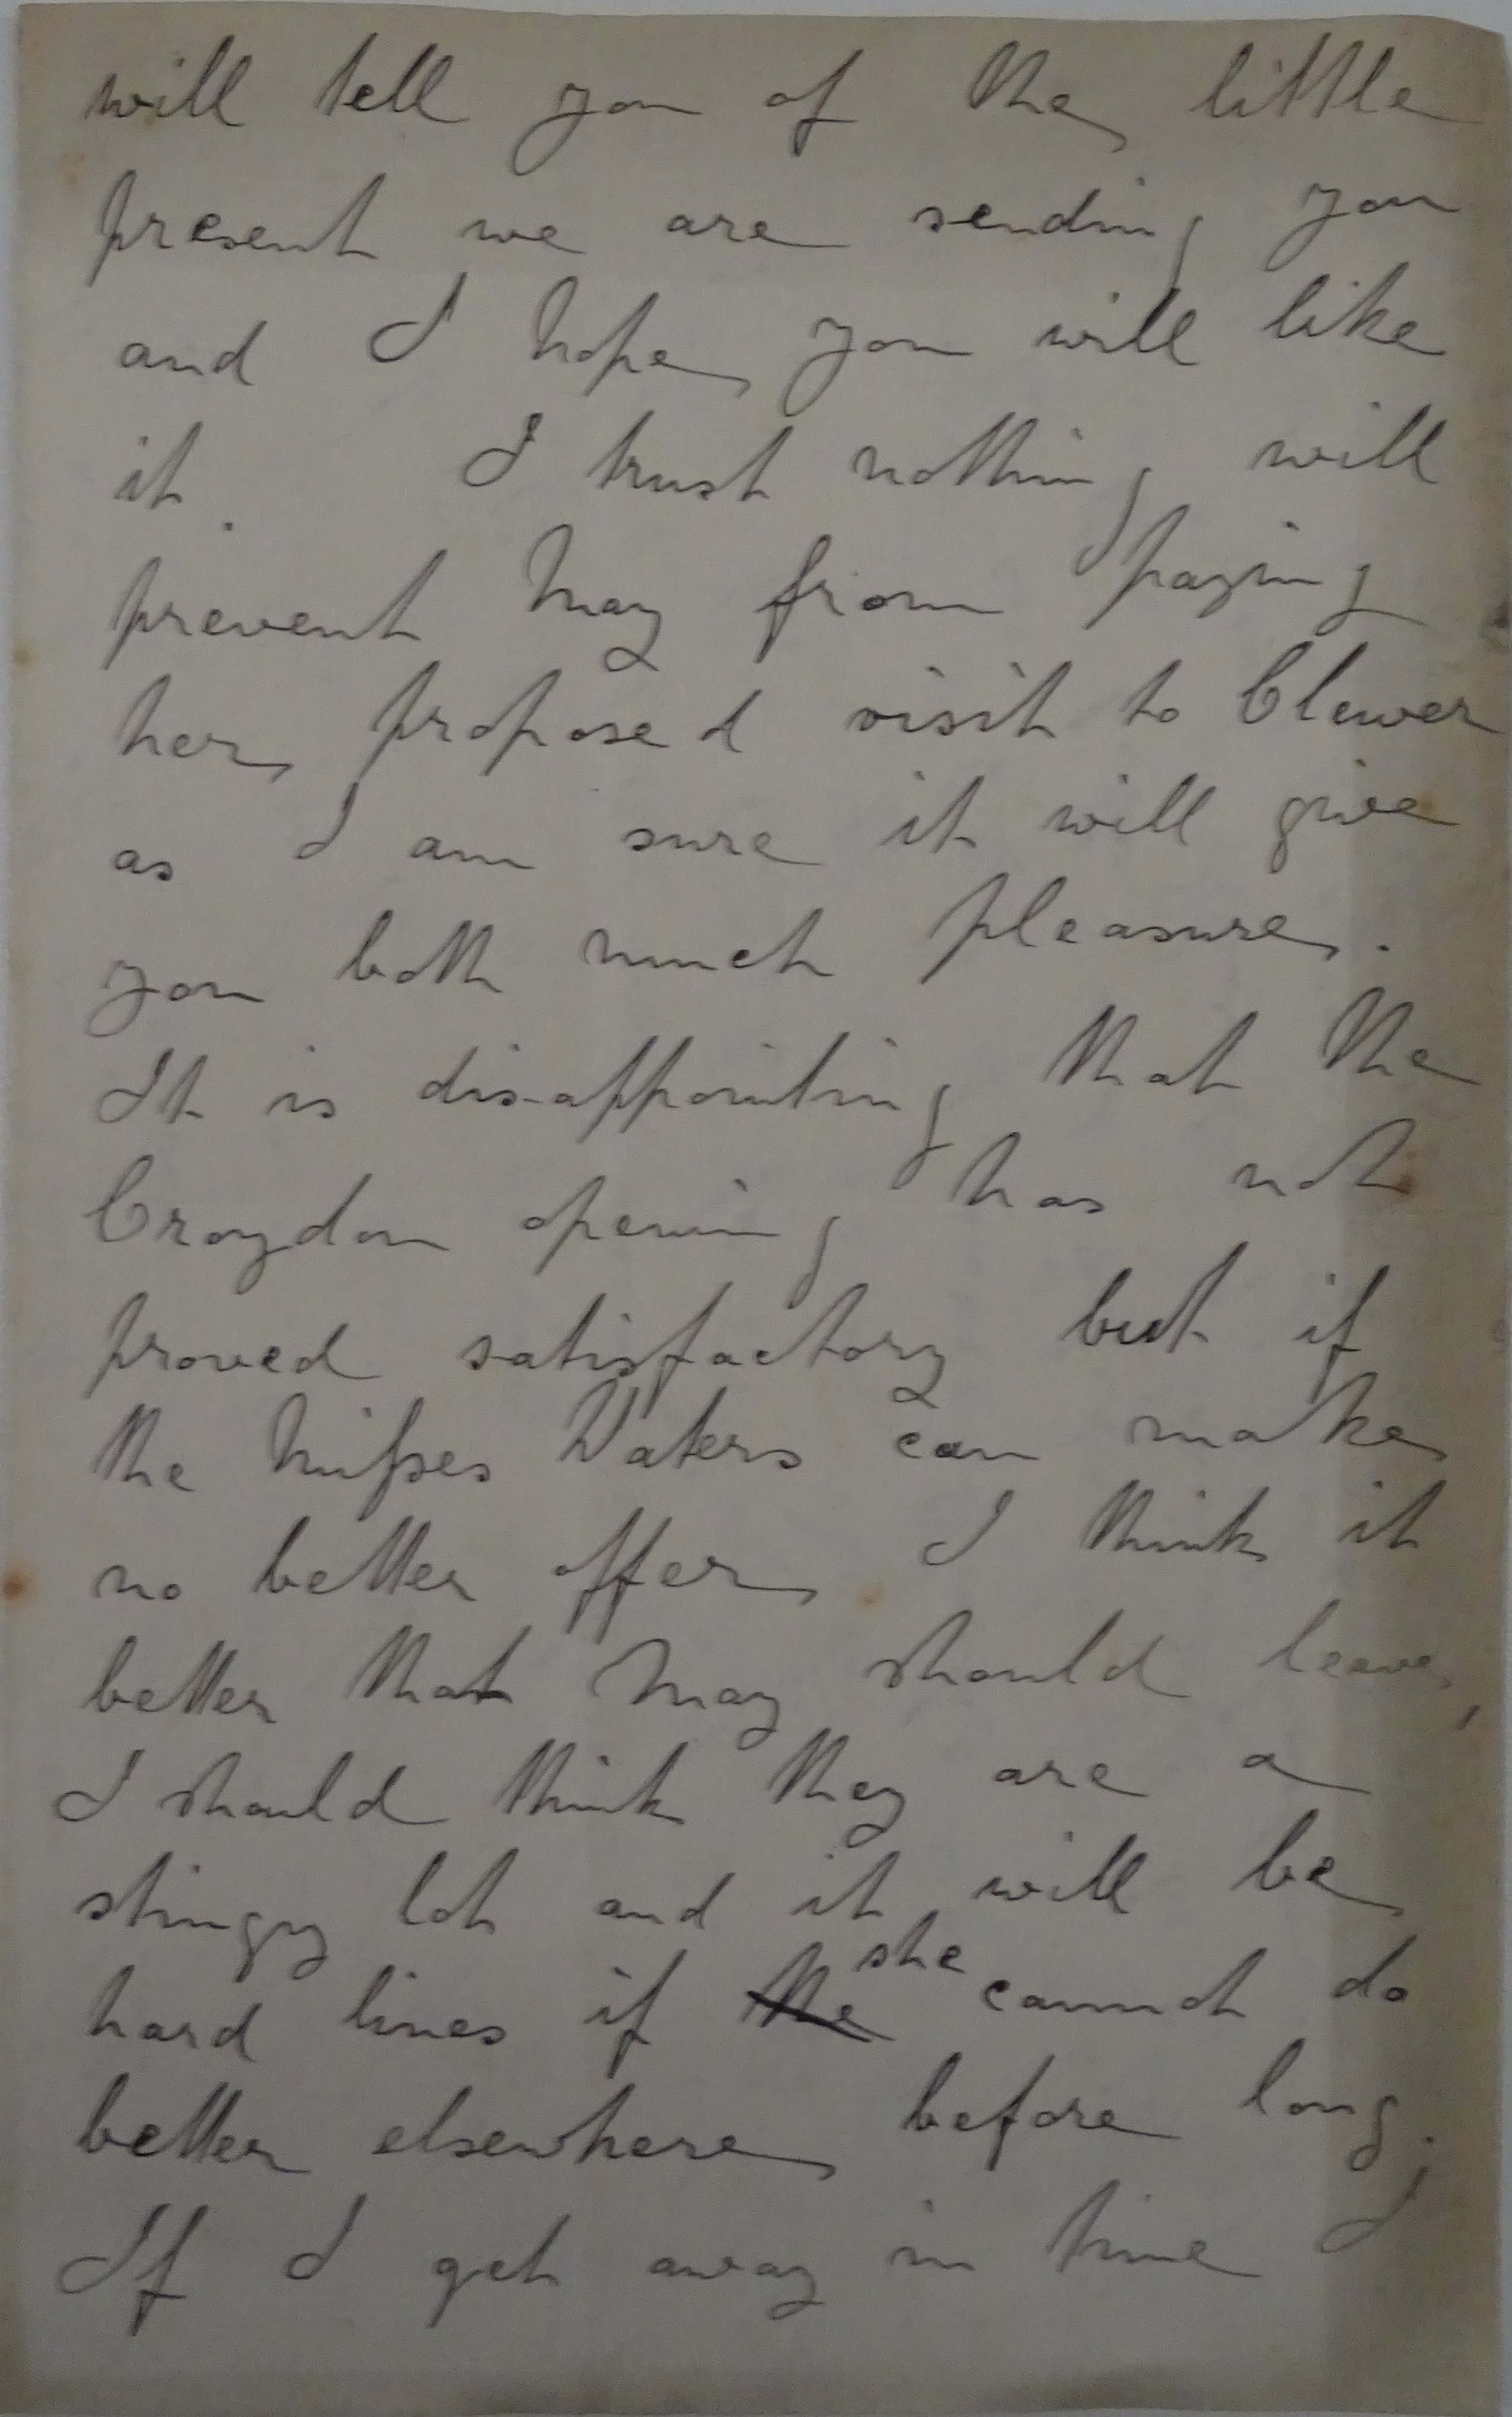 will tell you of the little
present we are sending you
and I hope you will like
it. I trust nothing will
prevent May from paying
her proposed visit to Clewer
as I am sure it will give
you both much pleasure.
It is disappointing that the
Croydon opening has not
proved satisfactory but if
the Misses Waters can make
no better offer I think it
better that May should leave,
I should think they are a
stingy lot and it will be
hard lines if the she cannot do
better elsewhere before long.
If I get away in time I